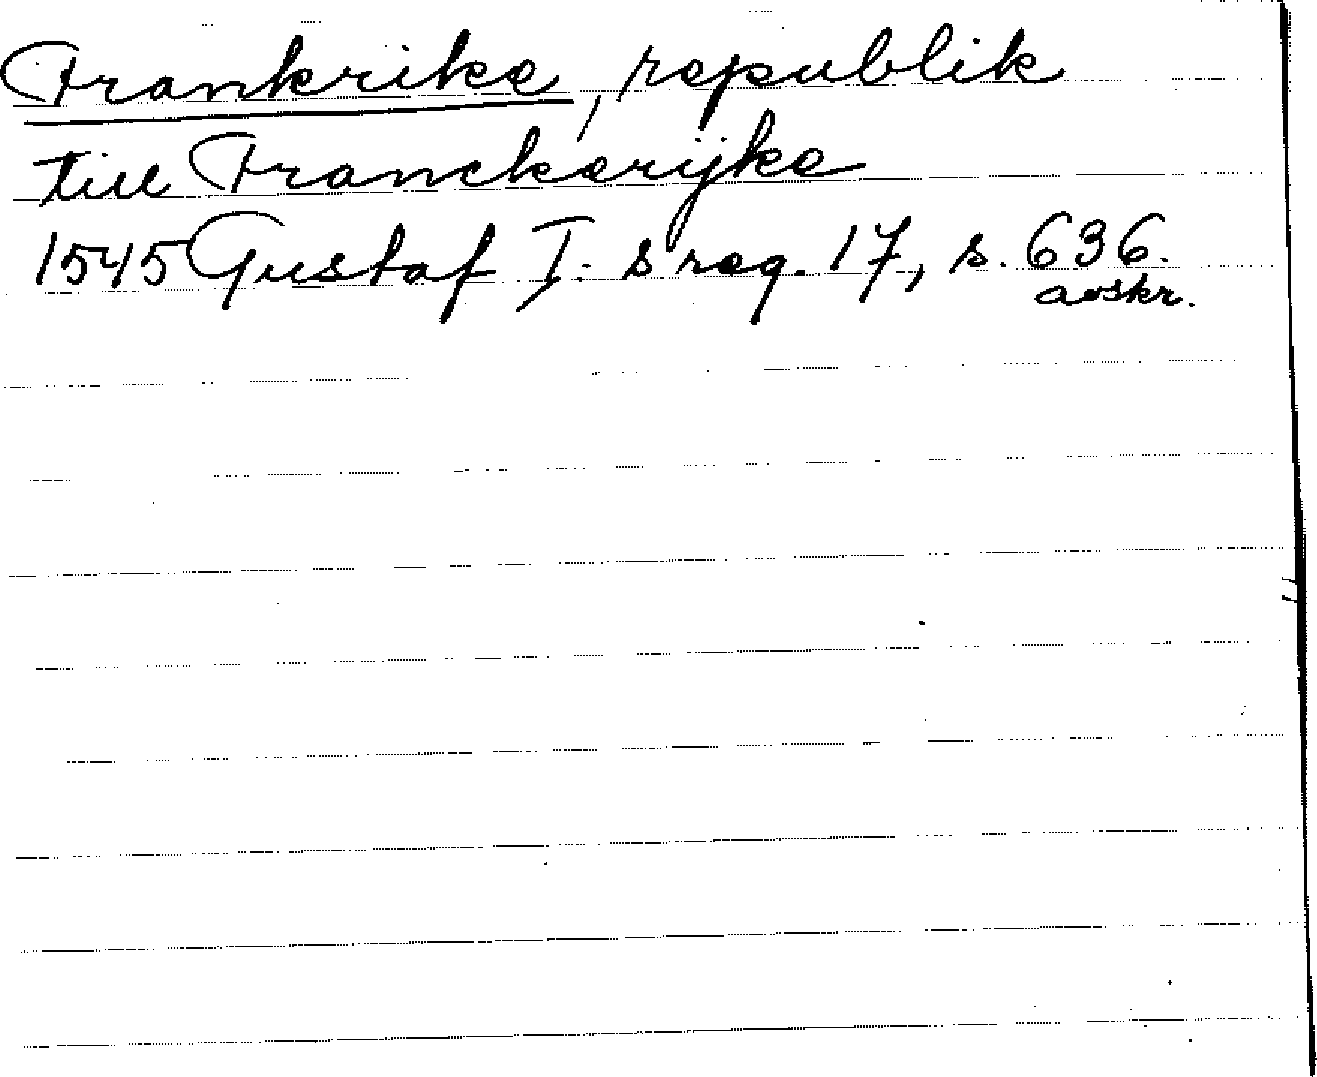 Frankrike, republik
till Franckerijke
1545 Gustaf I:s reg. 17, s. 636.
avskr.